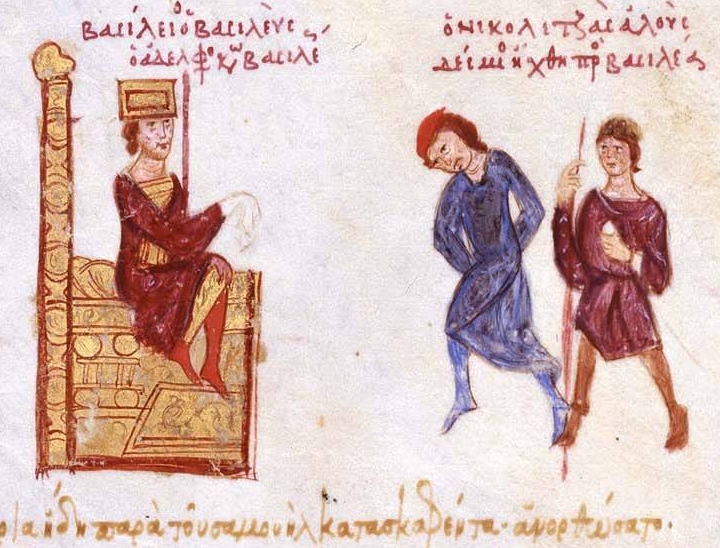 βασίλειος ὁ βασιλεὺς
ὁ ἀδελφὸς κω βασιλε
ὁ νικολιτζᾶς ἁλοὺς
δέσμιος ἤχθη πρὸ βασιλέα
ρια ἤδη παρὰ τοῦ σαμουὴλ κατασκαφέντα· ἀνορθώσατο.